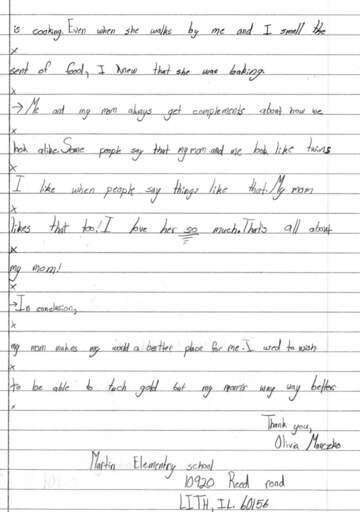 is cooking. Even when she walks by me and I smell the
x
sent of food, I knew that she was baking.
x
→ Me and my mom always get complements about how we
x
look alike. Some people say that my mom and me look like twins
x
I like when people say things like that. My mom
x
likes that too! I love her so much. That's all about
x
my mom!
x
→ In conclusion,
x
my mom makes my world a bettter place for me. I used to wish
x
to be able to toch gold but my mom's way way better.
x
Thank you,
Olivia
Martin Elementry school
10920 Reed road
LITH, IL. 60156